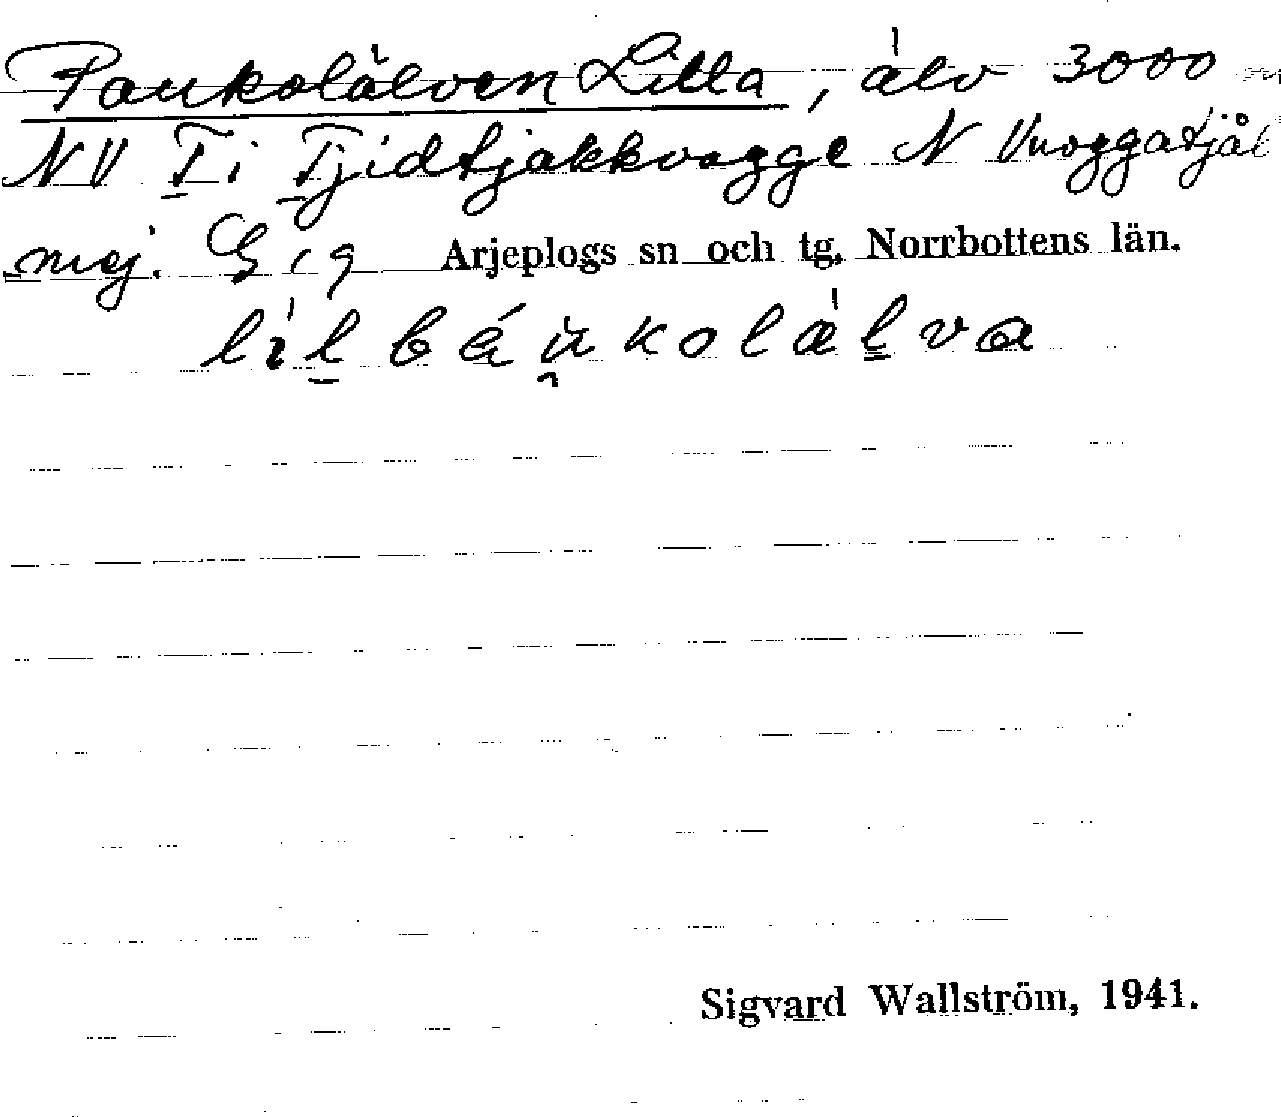 Paukolälven Lilla, älv 3000 m
NV T i Tjidtjakkvagge N Vuoggatjål
mej. G i q Arjeplogs sn och tg, Norrbottens län.
lìl báu̯kolälva
Sigvard Wallström, 1941.